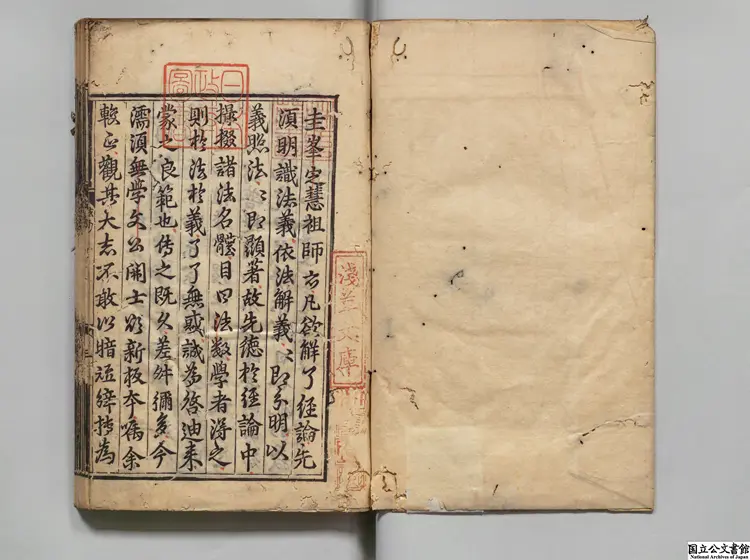 圭峯定慧祖師云凡欲解了經論先
須明識法義依法解義〻即分明以
義照法〻即顯著故先德於經論中
撮掇諸法名體目曰法數學者得之
則於法於義了了無惑誠為啓迪来
蒙之良範也传之既久差舛彌多今
濡須無學文公開士欲新板夲嘱余
較正觀其大志不敢以暗短辝
淺草文庫
国立公文書館
National Archives of Japan